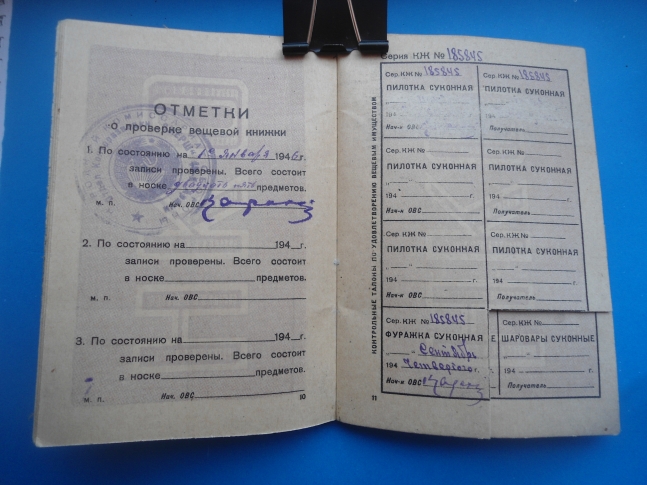 ОТМЕТКИ
о проверке вещевой книжки
1. По состоянию на 1го января 1946г.
записи проверены. Всего состоит
в носке двадцать пять предметов.
м. п. Нач. ОВС
2. По состоянию на 194 г.
записи проверены. Всего состоит
в носке предметов.
м. п. Нач. ОВС
3. По состоянию на 194 г.
записи проверены. Всего состоит
в носке предметов.
м. п. Нач. ОВС
10
Серия КЖ № 185845
КОНТРОЛЬНЫЕ ТАЛОНЫ ПО УДОВЛЕТВОРЕНИЮ ВЕЩЕВЫМ ИМУЩЕСТВОМ
Сер. КЖ № 185845
ПИЛОТКА СУКОННАЯ
194
Нач-к ОВС
Сер. КЖ № 185845
ПИЛОТКА СУКОННАЯ
Получатель
Сер. КЖ №
ПИЛОТКА СУКОННАЯ
194 г.
Нач-к ОВС
Сер. КЖ №
ПИЛОТКА СУКОННАЯ
194 г.
Получатель
Сер. КЖ №
ПИЛОТКА СУКОННАЯ
194 г.
Нач-к ОВС
Сер. КЖ №
ПИЛОТКА СУКОННАЯ
194 г.
Получатель
Сер. КЖ № 185845
ФУРАЖКА СУКОННАЯ
Сентябрь
194 Четвертого г.
Нач-к ОВС
Сер. КЖ №
ШАРОВАРЫ СУКОННЫЕ
194 г.
Получатель
11